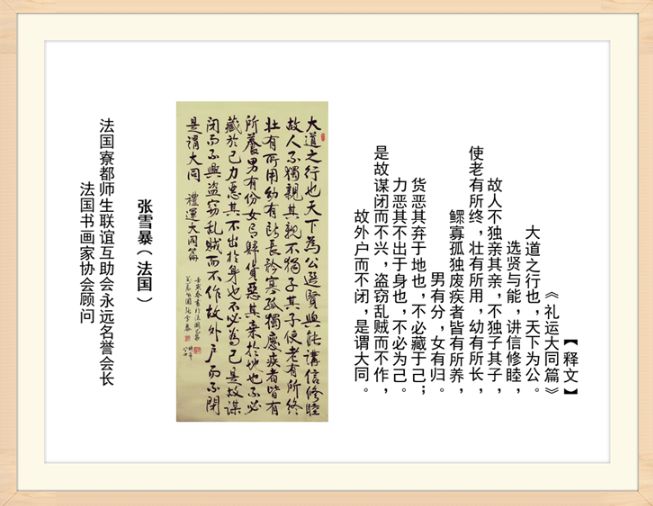 【释文】
《礼运大同篇》
大道之行也，天下为公。
选贤与能，讲信修睦，
故人不独亲其亲，不独子其子，
使老有所终，壮有所用，幼有所长，
鳏寡孤独废疾者皆有所养，
男有分，女有归。
货恶其弃于地也，不必藏于己；
力恶其不出于身也，不必为己。
是故谋闭而不兴，盗窃乱贼而不作，
故外户而不闭，是谓大同。
大道之行也天下為公選賢與能講信修睦
故人不獨親其親不獨子其子使老有所終
壯有所用幼有所長矜寡孤獨廢疾者皆有
所養男有份女有歸貨惡其棄於地也不必
藏於己力惡其不出於身也不必為己是故謀
閉而不興盜竊亂賊而不作故外户而不閉
是謂大同 禮運大同篇
张雪暴（法国）
法国寮都师生联谊互助会永远名誉会长
法国书画家协会顾问